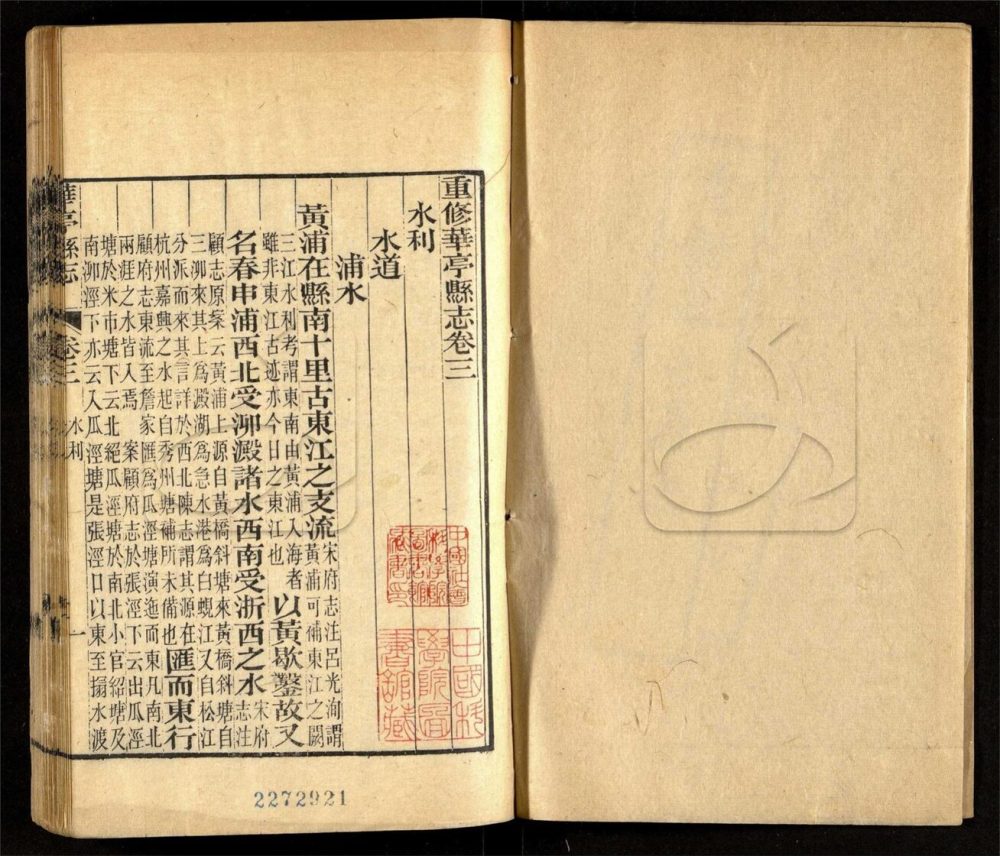 重修華亭縣志卷三
水利
水道
浦水
黃浦在縣南十里古東江之支流
宋府志注呂光洵謂
黃浦可補東江之闕
三江水利考謂東南由黃浦入海者
雖非東江古迹亦今日之東江也
以黃歇鑿故又
名春申浦西北受泖澱諸水西南受浙西之水
宋府
志注
顧志原案云黃浦上源自黃橋斜塘來黃橋斜塘自
三泖來其上爲澱湖爲急水港爲白蜆江又自松江
分派而來其言詳於西北陳志謂其源在
杭州嘉興之水起自秀州塘補所未備也
匯而東行
顧府志東流至詹家匯爲瓜涇塘演迤而東凡南北
兩涯之水皆入焉　案顧府志於張涇下云出瓜涇
塘於米市塘下云北絕瓜涇塘於南北小官紹塘及
南泖涇下亦云入瓜涇塘是張涇口以東至搨水渡
華亭縣志
卷三
水利
一
中國社會
科學院
圖書館
藏書印
中國科
學院圖
書館藏
2272921